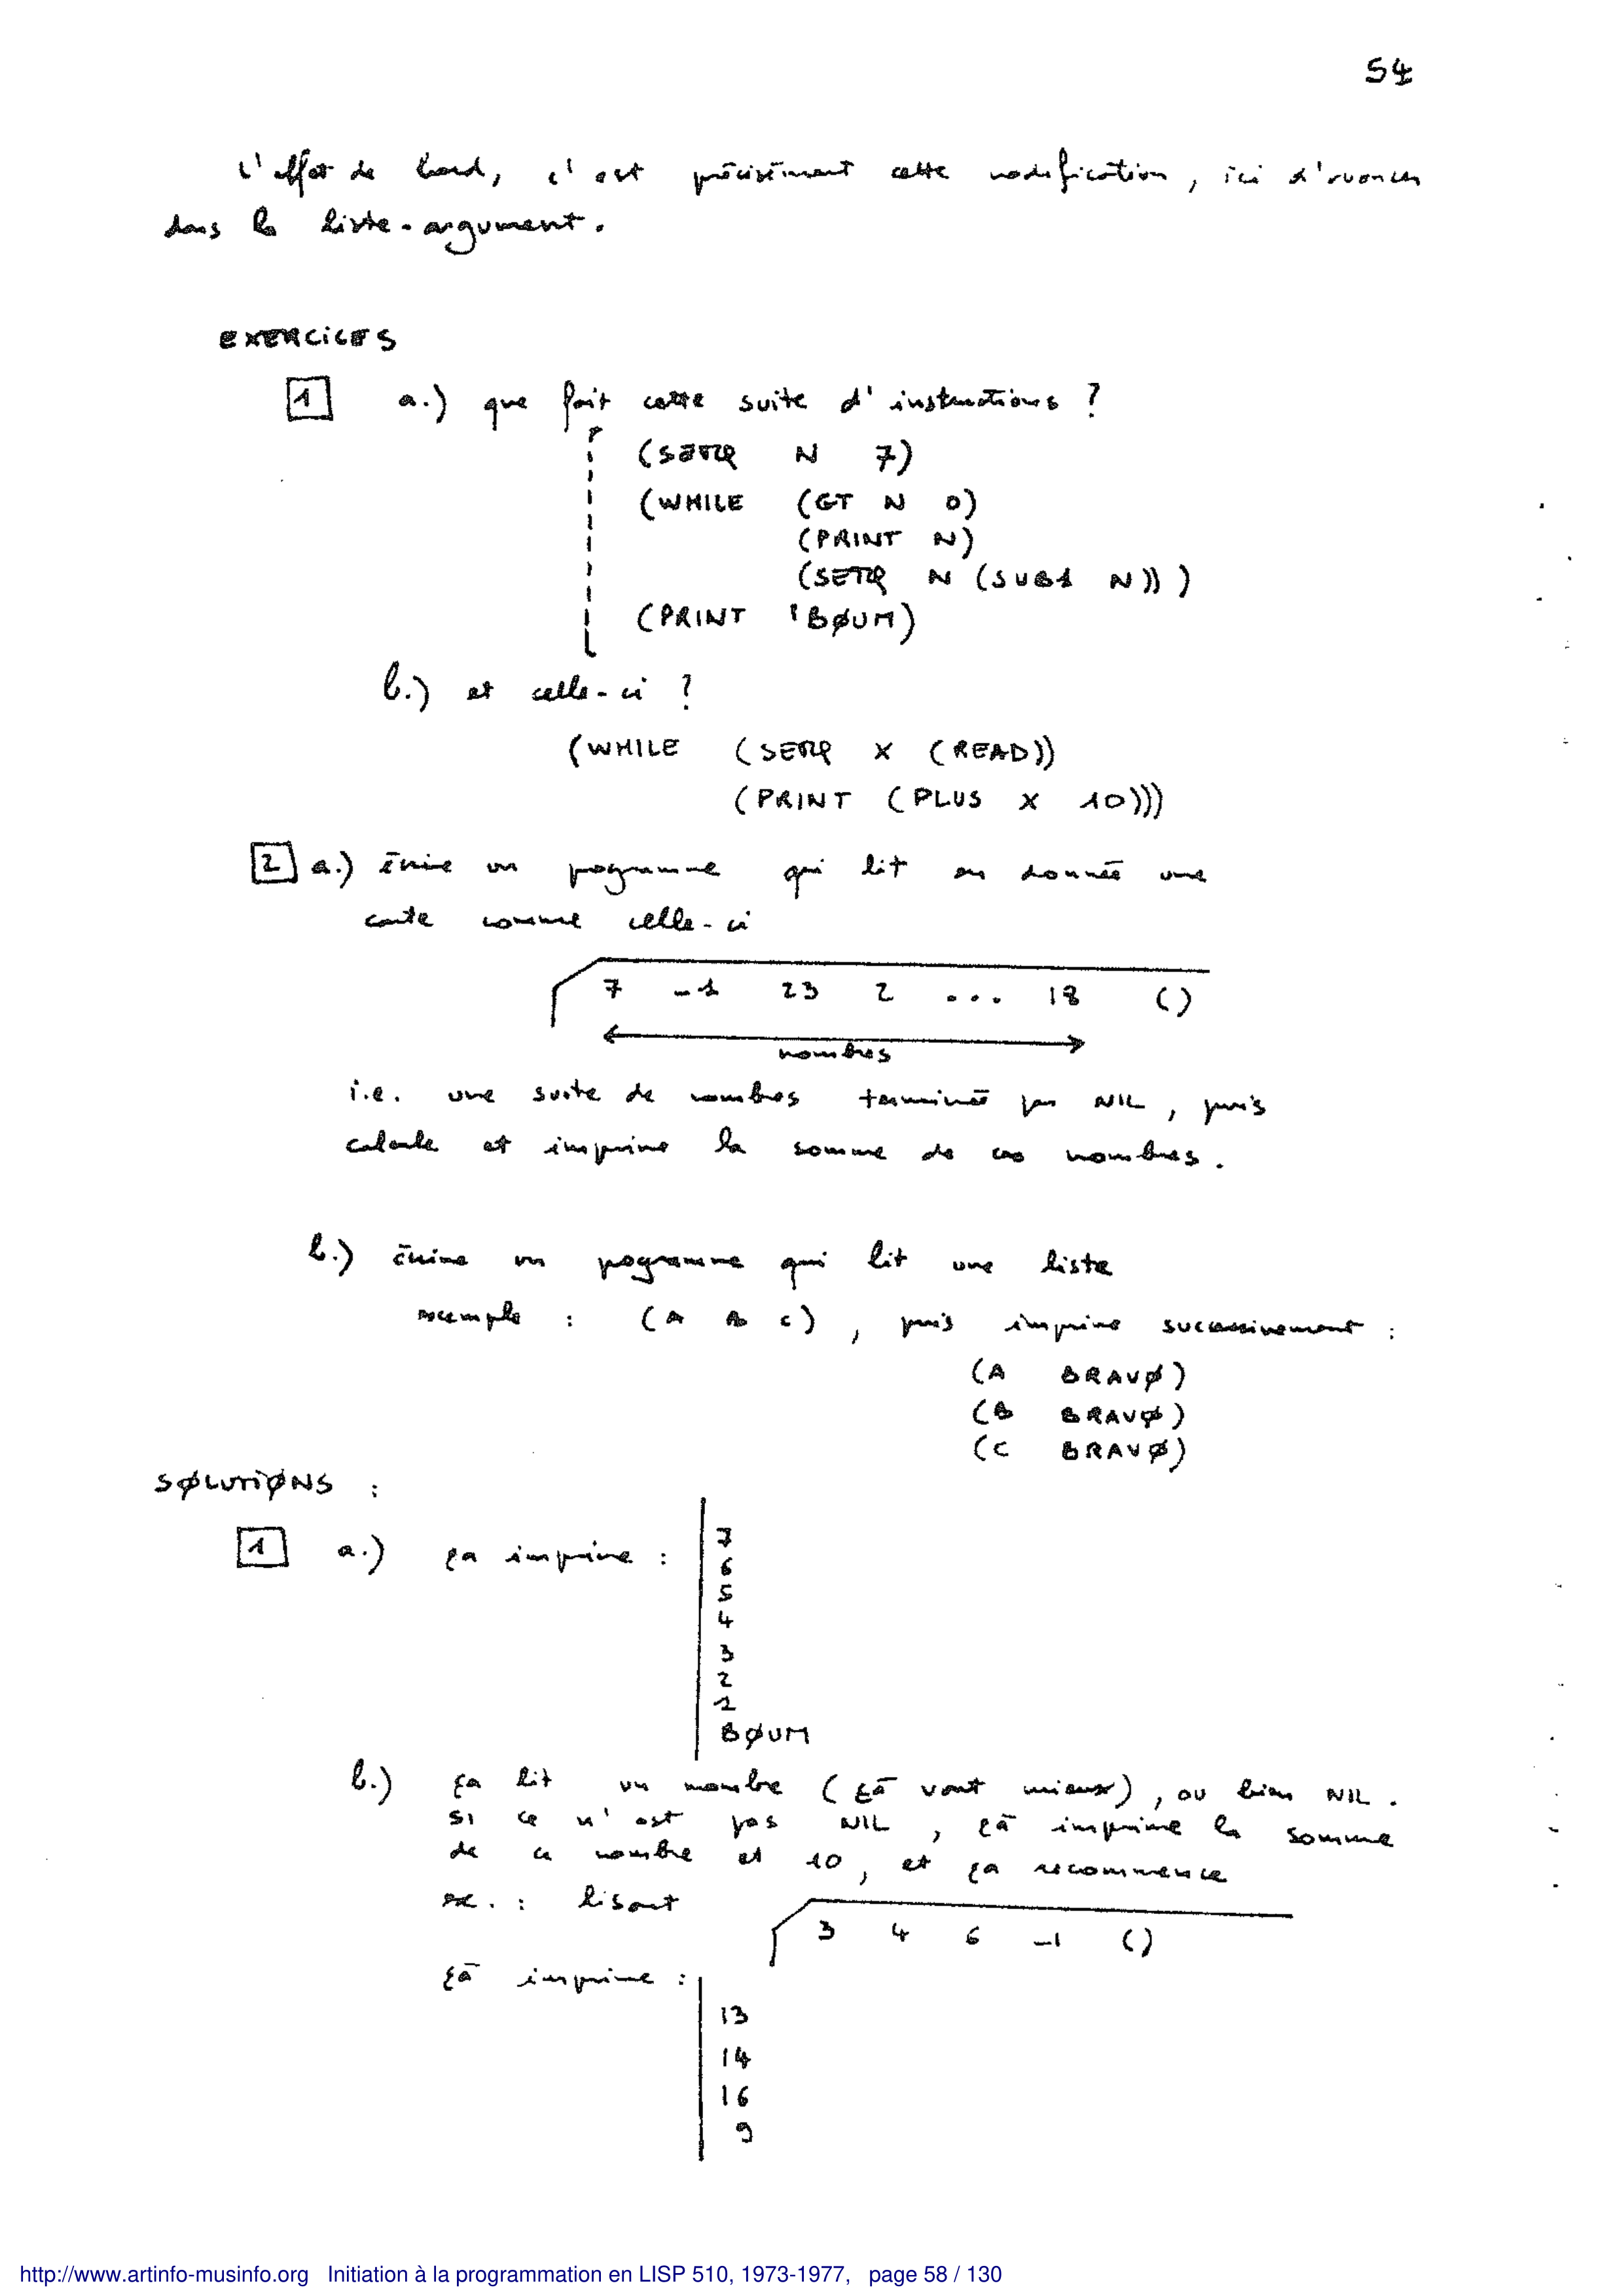 54
L'effet de bord, c'est précisément cette modification, ici d'avancer
dans la liste-argument.
EXERCICES
1 a.) que fait cette suite d'instructions ?
(SETQ N 7)
(WHILE (GT N 0)
(PRINT N)
(SETQ N (SUB1 N)) )
(PRINT 'BØUM)
b.) et celle-ci ?
(WHILE (SETQ X (READ))
(PRINT (PLUS X 10)))
2 a.) écrire un programme qui lit en donnée une
carte comme celle-ci
7 -1 23 2 ... 18 ()
nombres
i.e. une suite de nombres terminée par NIL, puis
calcule et imprime la somme de ces nombres.
b.) écrire un programme qui lit une liste
exemple : (A B C), puis imprime successivement :
(A BRAVØ)
(B BRAVØ)
(C BRAVØ)
SØLUTIØNS :
1 a.) ça imprime :
7
6
5
4
3
2
1
BØUM
b.) ça lit un nombre (çà vaut mieux), ou bien NIL.
si ce n'est pas NIL, çà imprime la somme
de ce nombre et 10, et ça recommence
ex. : lisant
3 4 6 -1 ()
çà imprime :
13
14
16
9
http://www.artinfo-musinfo.org Initiation à la programmation en LISP 510, 1973-1977, page 58 / 130